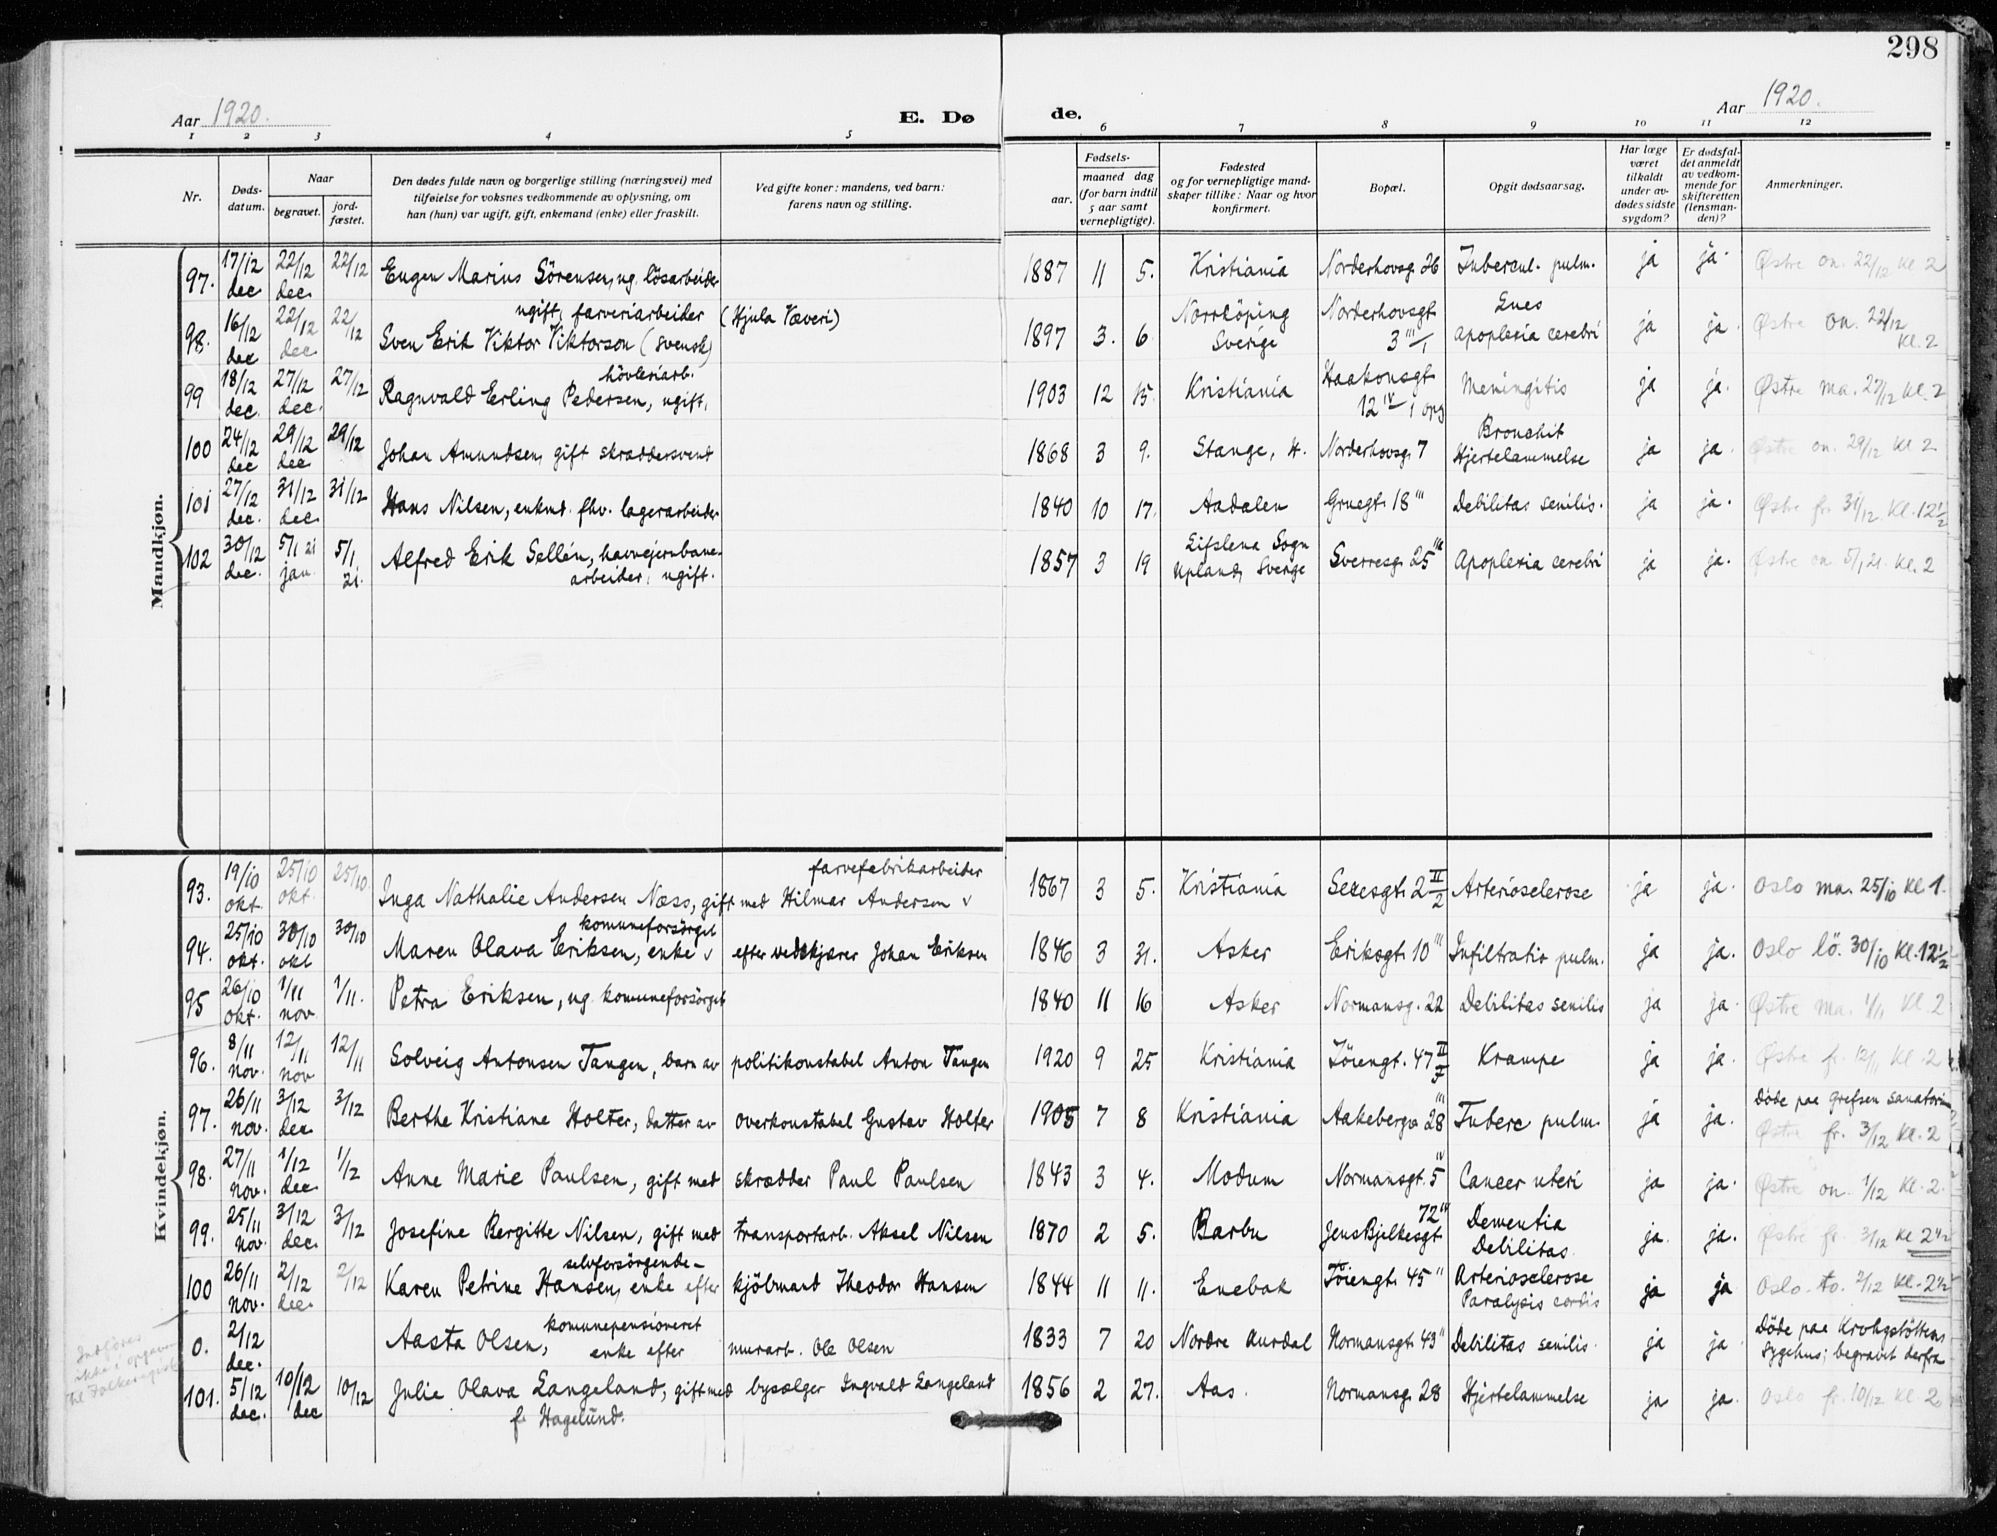 298
Aar 1920. E. Dø de. Aar 1920.
1 2 3 4 5 6 7 8 9 10 11 12
Nr. Døds-datum. Naar begravet. jord-fæstet. Den dødes fulde navn og borgerlige stilling (næringsvei) med tilføielse for voksnes vedkommende av oplysning, om han (hun) var ugift, gift, enkemand (enke) eller fraskilt. Ved gifte koner: mandens, ved barn: farens navn og stilling. Fødsels- aar. maaned dag (for barn indtil 5 aar samt vernepligtige). Fødested og for vernepligtige mandskaper tillike: Naar og hvor konfirmert. Bopæl. Opgit dødsaarsag. Har læge været tilkaldt under avdødes sidste sygdom? Er dødsfaldet anmeldt av vedkommende for skifteretten (lensmanden)? Anmerkninger.
Mandkjøn.
97. 17/12 dec 22/12 dec. 22/12 Eugen Marius Sörensen, ug. lösarbeider 1887 11 5. Kristiania Norderhovsg. 26 Tubercul. pulm. ja ja. Østre on. 22/12 Kl. 2
98. 16/12 dec 22/12 dec. 22/12 ugift, farveriarbeider (Hjula Væveri)
Sven Erik Viktor Viktorson (svensk) 1897 3. 6. Norrköping Sverige Norderhovsgt 3 III/1 Lues Apoplexia cerebri ja ja. Østre on. 22/12 Kl. 2
99 18/12 dec. 27/12 dec. 27/12 hövleriarb.
Ragnvald Erling Pedersen, ugift. 1903 12 15. Kristiania Haakonsgt 12 IV 1 opg Meningitis ja ja. Østre ma. 27/12 Kl. 2
100 24/12 dec 29/12 dec 29/12 Johan Amundsen, gift skraddersvend 1868 3 9. Stange, H. Norderhovsg. 7 Bronchit Hjertelammelse ja ja. Østre on. 29/12 Kl 2
101 27/12 dec. 31/12 dec. 31/12 Hans Nilsen, enkmd. fhv. lagerarbeider 1840 10 17. Aadalen Gruegt. 18 III Debilitas senilis. ja ja. Østre fr. 31/12. Kl. 12 1/2
102 30/12 dec. 5/1 21 jan. 5/1 21. Alfred Erik Sellén, havnejernbane-
arbeider, ugift. 1857 3 19 Sogn Upland, Sverige Sverresg. 25 III Apoplexia cerebri ja ja. Østre on. 5/1 21. Kl. 2
Kvindekjøn.
93. 19/10 okt. 25/10 okt. 25/10. farvefabrikarbeider
Inga Nathalie Andersen Næss, gift med Hilmar Andersen v 1867 3 5. Kristiania Sexesgt. 2 II/2 Arteriosclerose ja ja. Oslo ma. 25/10 Kl 1.
94. 25/10 okt. 30/10 okt 30/10 kommuneforsörget
Maren Olava Eriksen, enke v efter vedskjærer Johan Eriksen 1846 3 31. Asker Eriksgt. 10 III Infiltratio pulm. ja ja. Oslo lö. 30/10 Kl. 12 1/2
95 26/10 okt. 1/11 nov. 1/11. Petra Eriksen, ug. kommuneforsörget 1840 11 16 Asker Normansg. 22 Debilitas senilis ja ja. Østre ma. 1/11 Kl. 2
96. 8/11 nov. 12/11 nov 12/11 Solveig Antonsen Tangen, barn av politikonstabel Anton Tangen 1920 9 25 Kristiania Töiengt. 47 II/F Krampe ja ja. Østre fr. 12/11 Kl. 2
97. 26/11 nov. 3/12 dec 3/12 Berthe Kristiane Holter, datter av overkonstabel Gustav Holter 1905 7 8 Kristiania Aakebergv. 28 III Tuberc pulm. ja ja. Döde paa Grefsen sanatorium
Østre fr. 3/12 Kl. 2
98. 27/11 nov. 1/12 dec. 1/12 Anne Marie Paulsen, gift med skrædder Paul Paulsen 1843 3 4. Modum Normansgt. 5 IV Cancer uteri ja ja. Østre on. 1/12 Kl. 2.
99. 25/11 nov. 3/12 dec. 3/12 Josefine Bergitte Nilsen, gift med transportarb. Aksel Nilsen 1870 2 5. Barbu Jens Bjelkesgt 72 IV Dementia Debilitas. ja ja. Østre fr. 3/12 Kl 2 1/2
100 26/11 nov. 2/12 dec. 2/12 selvforsörgende-
Karen Petrine Hansen, enke efter kjöbmand Theodor Hansen 1844 11 11. Enebak Töiengt. 45 II Arteriosclerose Paralysis cordis ja ja Oslo to. 2/12 Kl. 2 1/2
0. 2/12 dec. Aasta Olsen, kommunepensioneret enke efter murarb. Ole Olsen 1833 7 20 Nordre Aurdal Normansgt. 43 II Debilitas senilis. ja ja Döde paa Krohgstöttens
Sygehus; begravet derfra
Indföres ikke i opgaven til Folkeregistret
101. 5/12 dec. 10/12 dec 10/12 Julie Olava Langeland, gift med bysælger Ingvald Langeland 1856 2 27. Aas. Normansg. 28 Hjertelammelse ja ja. Oslo fr. 10/12 Kl. 2
f. Hagelund.